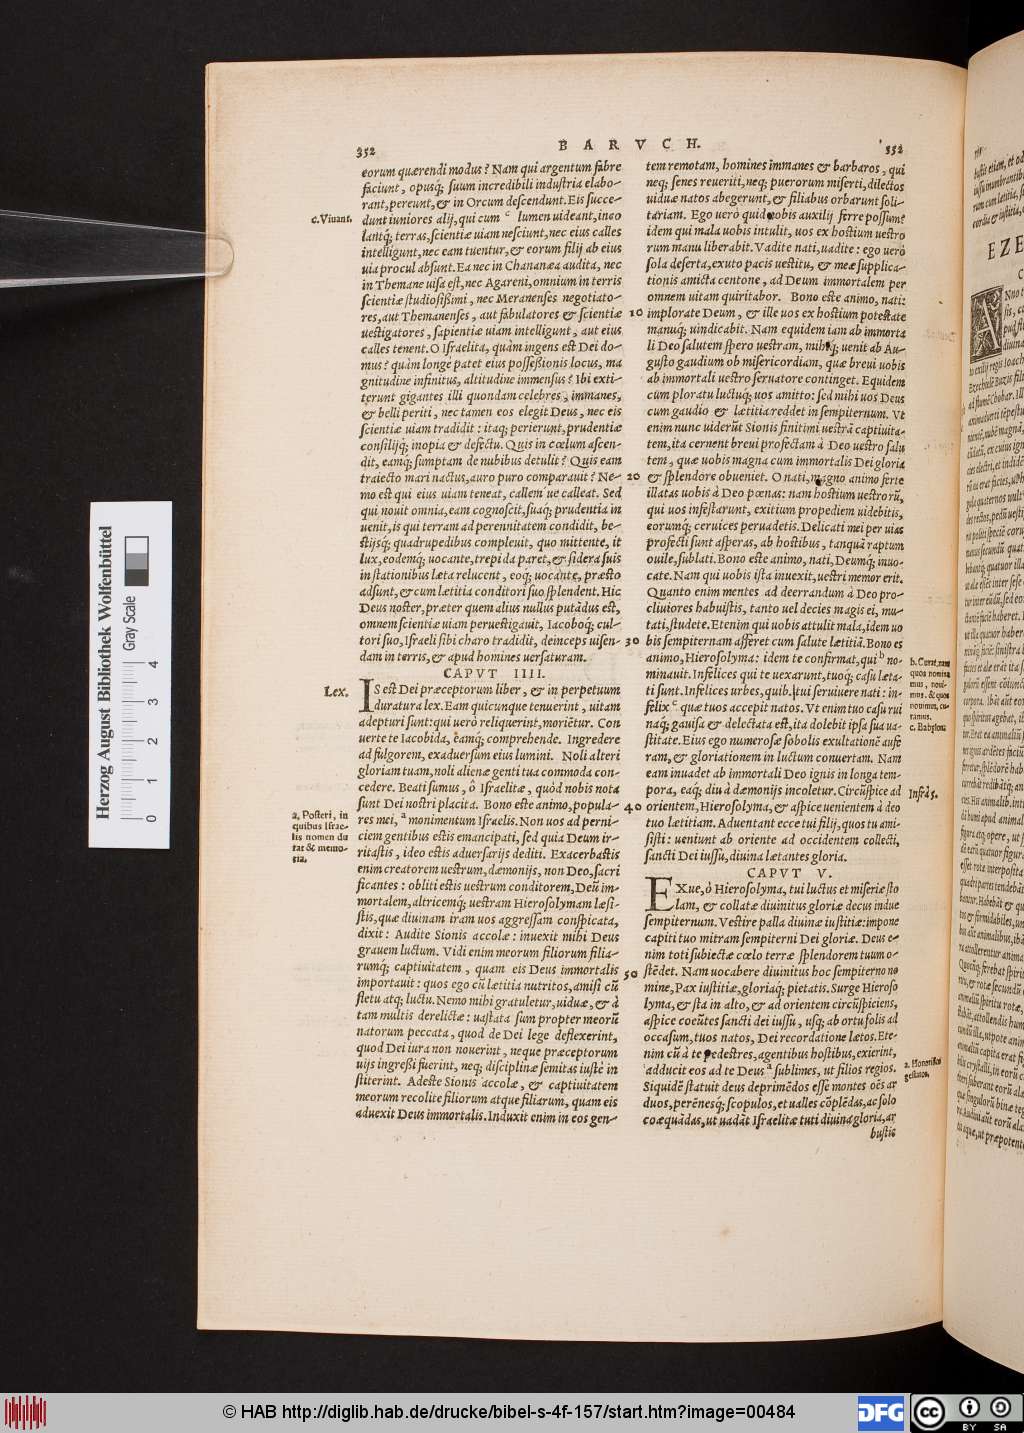 352 BARVCH. 352
eorum quærendi modus? Nam qui argentum fabre
faciunt, opusq́; suum incredibili industria elabo-
rant, pereunt, & in Orcum descendunt. Eis succe-
c. Viuant.
dunt iuniores alij, qui cum c lumen uideant, inco
lantq́; terras, scientiæ uiam nesciunt, nec eius calles
intelligunt, nec eam tuentur, & eorum filij ab eius
uia procul absunt. Ea nec in Chananæa audita, nec
in Themane uisa est, nec Agareni, omnium in terris
scientiæ studiosissimi, nec Meranenses negotiato-
res, aut Themanenses, aut fabulatores & scientiæ
uestigatores, sapientiæ uiam intelligunt, aut eius
calles tenent. O Israelita, quàm ingens est Dei do-
mus? quàm longe patet eius possessionis locus, ma
gnitudine infinitus, altitudine immensus? Ibi exti-
terunt gigantes illi quondam celebres, immanes,
& belli periti, nec tamen eos elegit Deus, nec eis
scientiæ uiam tradidit: itaq; perierunt, prudentiæ
consilijq́; inopia & defectu. Quis in cœlum ascen-
dit, eamq́; sumptam de nubibus detulit? Quis eam
traiecto mari nactus, auro puro comparauit? Ne-
mo est qui eius uiam teneat, callem ue calleat. Sed
qui nouit omnia, eam cognoscit, suaq́; prudentia in
uenit, is qui terram ad perennitatem condidit, be-
stijsq́; quadrupedibus compleuit, quo mittente, it
lux, eodemq́; uocante, trepida paret, & sidera suis
in stationibus læta relucent, eoq́; uocante, præsto
adsunt, & cum lætitia conditori suo splendent. Hic
Deus noster, præter quem alius nullus putādus est,
omnem scientiæ uiam peruestigauit, Iacoboq́; cul-
tori suo, Israeli sibi charo tradidit, deinceps uisen-
dam in terris, & apud homines uersaturam.
CAPVT IIII.
Lex.
IS est Dei præceptorum liber, & in perpetuum
duratura lex. Eam quicunque tenuerint, uitam
adepturi sunt: qui uerò reliquerint, moriētur. Con
uerte te Iacobida, eamq́; comprehende. Ingredere
ad fulgorem, exaduersum eius lumini. Noli alteri
gloriam tuam, noli alienæ genti tua commoda con-
cedere. Beati sumus, ô Israelitæ, quòd nobis nota
sunt Dei nostri placita. Bono este animo, popula-
a. Posteri, in
quibus Israe-
lis nomen du
rat & memo-
ria.
res mei, a monimentum Israelis. Non uos ad perni-
ciem gentibus estis emancipati, sed quia Deum ir-
ritastis, ideo estis aduersarijs dediti. Exacerbastis
enim creatorem uestrum, dæmonijs, non Deo, sacri
ficantes: obliti estis uestrum conditorem, Deū im-
mortalem, altricemq́; uestram Hierosolymam læsi-
stis, quæ diuinam iram uos aggressam conspicata,
dixit: Audite Sionis accolæ: inuexit mihi Deus
grauem luctum. Vidi enim meorum filiorum filia-
rumq́; captiuitatem, quam eis Deus immortalis
importauit: quos ego cū lætitia nutritos, amisi cū
fletu atq; luctu. Nemo mihi gratuletur, uiduæ, & à
tam multis derelictæ: uastata sum propter meorū
natorum peccata, quod de Dei lege deflexerint,
quod Dei iura non nouerint, neque præceptorum
uijs ingressi fuerint, neq; disciplinæ semitas iustè in
stiterint. Adeste Sionis accolæ, & captiuitatem
meorum recolite filiorum atque filiarum, quam eis
aduexit Deus immortalis. Induxit enim in eos gen-
tem remotam, homines immanes & barbaros, qui
neq; senes reueriti, neq; puerorum miserti, dilectos
uiduæ natos abegerunt, & filiabus orbarunt soli-
tariam. Ego uerò quid uobis auxilij ferre possum?
idem qui mala uobis intulit, uos ex hostium uestro
rum manu liberabit. Vadite nati, uadite: ego uerò
sola deserta, exuto pacis uestitu, & meæ supplica-
tionis amicta centone, ad Deum immortalem per
omnem uitam quiritabor. Bono este animo, nati:
10 implorate Deum, & ille uos ex hostium potestate
manuq́; uindicabit. Nam equidem iam ab immorta
li Deo salutem spero uestram, mihiq́; uenit ab Au-
gusto gaudium ob misericordiam, quæ breui uobis
ab immortali uestro seruatore continget. Equidem
cum ploratu luctuq́; uos amitto: sed mihi uos Deus
cum gaudio & lætitia reddet in sempiternum. Vt
enim nunc uiderūt Sionis finitimi uestrā captiuita-
tem, ita cernent breui profectam à Deo uestro salu
tem, quæ uobis magna cum immortalis Dei gloria
20 & splendore obueniet. O nati, magno animo ferte
illatas uobis à Deo pœnas: nam hostium uestrorū,
qui uos infestarunt, exitium propediem uidebitis,
eorumq́; ceruices peruadetis. Delicati mei per uias
profecti sunt asperas, ab hostibus, tanquā raptum
ouile, sublati. Bono este animo, nati, Deumq́; inuo-
cate. Nam qui uobis ista inuexit, uestri memor erit.
Quanto enim mentes ad deerrandum à Deo pro-
cliuiores habuistis, tanto uel decies magis ei, mu-
tati, studete. Etenim qui uobis attulit mala, idem uo
30 bis sempiternam afferet cum salute lætitiā. Bono es
animo, Hierosolyma: idem te confirmat, qui b no-
b. Curat, nam
quos nomina
mus, noui-
mus. & quos
nouimus, cu-
ramus.
c. Babylon.
minauit. Infelices qui te uexarunt, tuoq́; casu læta-
ti sunt. Infelices urbes, quib. tui seruiuere nati: in-
felix c quæ tuos accepit natos. Vt enim tuo casu rui
naq́; gauisa & delectata est, ita dolebit ipsa sua ua-
stitate. Eius ego numerosæ sobolis exultationē aufe
ram, & gloriationem in luctum conuertam. Nam
eam inuadet ab immortali Deo ignis in longa tem-
pora, eaq́; diu à dæmonijs incoletur. Circūspice ad
Infrà 5.
40 orientem, Hierosolyma, & aspice uenientem à deo
tuo lætitiam. Aduentant ecce tui filij, quos tu ami-
sisti: ueniunt ab oriente ad occidentem collecti,
sancti Dei iussu, diuina lætantes gloria.
CAPVT V.
EXue, ô Hierosolyma, tui luctus et miseriæ sto
lam, & collatæ diuinitus gloriæ decus indue
sempiternum. Vestire palla diuinæ iustitiæ: impone
capiti tuo mitram sempiterni Dei gloriæ. Deus e-
nim toti subiectæ cœlo terræ splendorem tuum o-
50 stēdet. Nam uocabere diuinitus hoc sempiterno no
mine, Pax iustitiæ, gloriaq́; pietatis. Surge Hieroso
lyma, & sta in alto, & ad orientem circūspiciens,
aspice coeūtes sancti dei iussu, usq; ab ortu solis ad
occasum, tuos natos, Dei recordatione lætos. Ete-
nim cū à te pedestres, agentibus hostibus, exierint,
a. Honorificè
gestatos.
adducit eos ad te Deus a sublimes, ut filios regios.
Siquidē statuit deus deprimēdos esse montes oēs ar
duos, perēnesq́; scopulos, et ualles cōplēdas, ac solo
coæquādas, ut uadāt Israelitæ tuti diuina gloria, ar
bustis
EZE
Herzog August Bibliothek Wolfenbüttel
Gray Scale
0 1 2 3 4
© HAB http://diglib.hab.de/drucke/bibel-s-4f-157/start.htm?image=00484
DFG
cc BY SA